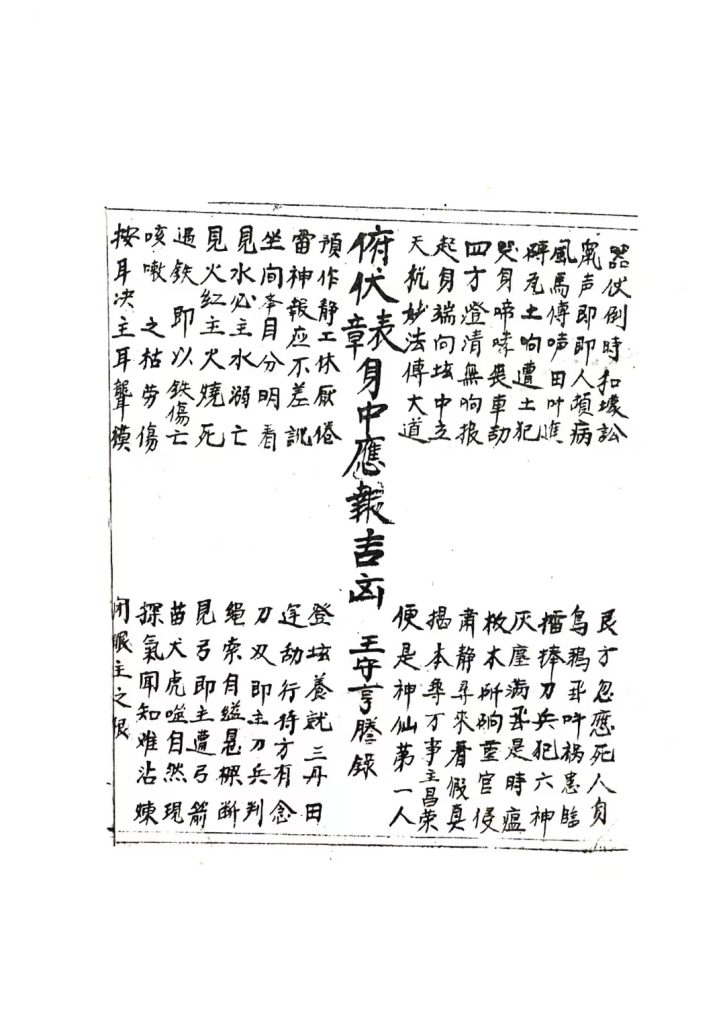 器仗倒時扣壞訟 艮方忽應死人身
声即即人頻病 鳥鴉飛叶禍患臨
風馬傳哮田叶進 擂捧刀兵犯六神
磚瓦土响遭土犯 灰塵滿飛是時瘟
哭身啼哮喪車劫 板木所响官侵
四方澄清無响报 肅静尋來看假真
起身端向坛中立 揭本尋万事主昌荣
天梳妙法傳大道 便是神仙第一人
俯伏表章身中應報吉凶 王守亨謄録
預作静工休厭倦 登坛養就三丹田
雷神報应不差訛 劫行持方有念
坐间本目分明看 刀双即主刀兵判
見水必主水溺亡 繩索自縊悬樑断
見火红主火燒死 見弓即主遭弓箭
遇鉄即以鉄傷亡 苗犬虎噬自然現
咳嗽之枯劳傷 探氣聞知难沾煉
按耳决主耳聾模 闭眼主之眼